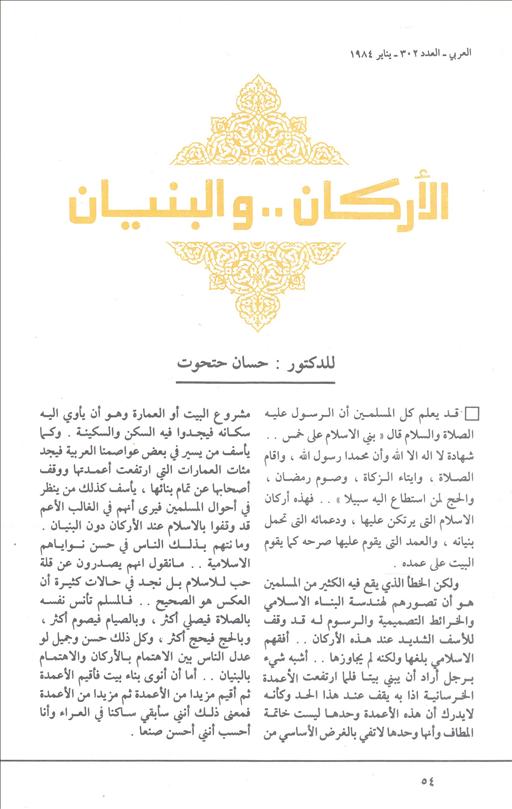 العربي - العدد ٣٠٢ - يناير ١٩٨٤
الأركان .. والبنيان
للدكتور : حسان حتحوت
قد يعلم كل المسلمين أن الرسول عليه
الصلاة والسلام قال « بني الاسلام على خمس . .
شهادة لا اله الا الله وأن محمدا رسول الله ، واقام
الصلاة ، وايتاء الزكاة ، وصوم رمضان ،
والحج لمن استطاع اليه سبيلا » . . فهذه أركان
الاسلام التى يرتكن عليها ، ودعمائه التى تحمل
بنيانه ، والعمد التى يقوم عليها صرحه كما يقوم
البيت على عمده .
ولكن الخطأ الذي يقع فيه الكثير من المسلمين
هو أن تصورهم لهندسة البناء الاسلامي
والخرائط التصميمية والرسوم له قد وقف
للأسف الشديد عند هذه الأركان . . أفقهم
الاسلامي بلغها ولكنه لم يجاوزها . . أشبه شيء
برجل أراد أن يبني بيتا فلما ارتفعت الأعمدة
الخرسانية اذا به يقف عند هذا الحد وكأنه
لايدرك أن هذه الأعمدة وحدها ليست خاتمة
المطاف وأنها وحدها لاتفي بالغرض الأساسي من
مشروع البيت أو العمارة وهو أن يأوي اليه
سكانه فيجدوا فيه السكن والسكينة . وكما
يأسف من يسير في بعض عواصمنا العربية فيجد
مئات العمارات التي ارتفعت أعمدتها ووقف
أصحابها عن تمام بنائها ، يأسف كذلك من ينظر
في أحوال المسلمين فيرى أنهم في الغالب الأعم
قد وقفوا بالاسلام عند الأركان دون البنيان .
وما نتهم بذلك الناس في حسن نواياهم
الاسلامية . . مانقول انهم يصدرون عن قلة
حب للاسلام بل نجد في حالات كثيرة أن
العكس هو الصحيح . . فالمسلم تأنس نفسه
بالصلاة فيصلي أكثر ، وبالصيام فيصوم أكثر ،
وبالحج فيحج أكثر ، وكل ذلك حسن وجميل لو
عدل الناس بين الاهتمام بالأركان والاهتمام
بالبنيان . . أما أن أنوى بناء بيت فأقيم الأعمدة
ثم أقيم مزيدا من الأعمدة ثم مزيدا من الأعمدة
فمعنى ذلك أنني سأبقي ساكنا في العراء وأنا
أحسب أنني أحسن صنعا .
٥٤